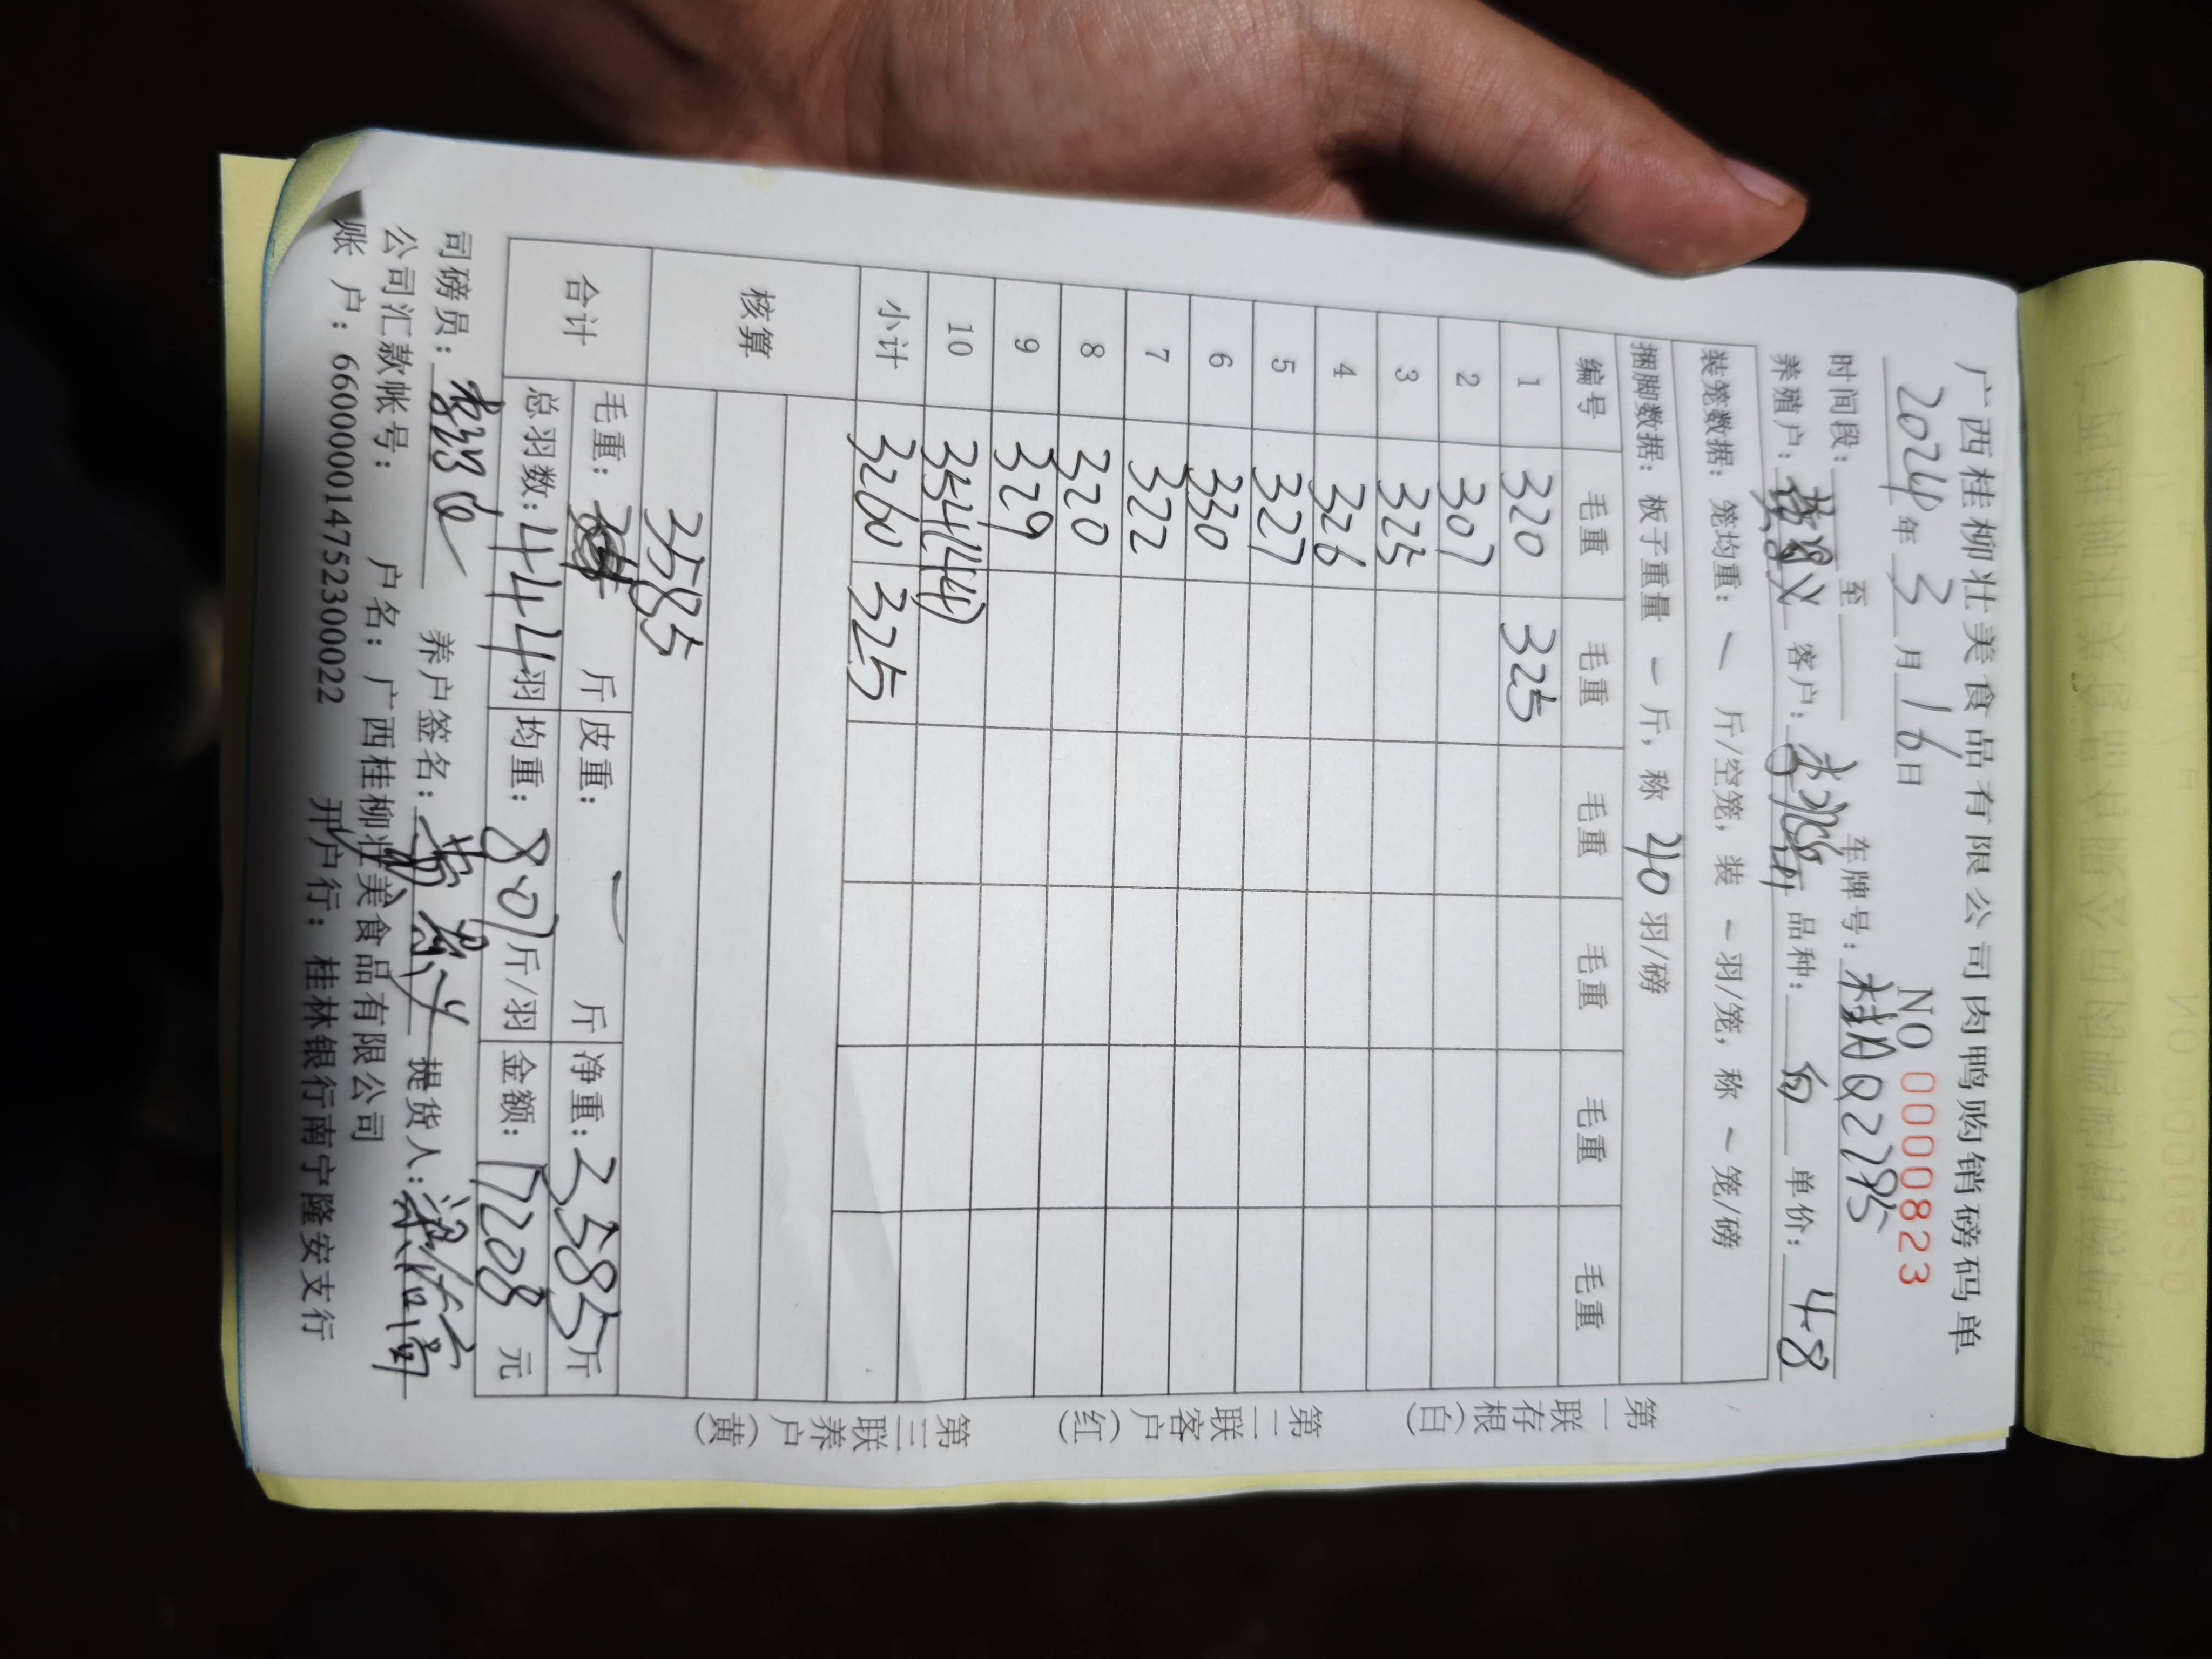 广西桂柳壮美食品有限公司肉鸭购销磅码单
2024年3月16日 NO 0000823
时间段: 至 车牌号: 桂AQ2795
养殖户: 客户: 品种: 白 单价: 4.8
装笼数据: 笼均重: — 斤/空笼, 装 — 羽/笼, 称 — 笼/磅
捆脚数据: 板子重量 — 斤, 称 40 羽/磅
编号 毛重 毛重 毛重 毛重 毛重 毛重
1 320 325
2 307
3 325
4 326
5 327
6 330
7 322
8 320
9 329
10 354(44)
小计 3260 325
核算
3585
合计 毛重: 斤 皮重: — 斤 净重: 3585斤
总羽数: 444羽 均重: 8.07斤/羽 金额: 17208 元
司磅员: 养户签名: 提货人:
公司汇款帐号: 户名: 广西桂柳壮美食品有限公司
账 户: 660000014752300022 开户行: 桂林银行南宁隆安支行
第一联存根(白) 第二联客户(红) 第三联养户(黄)